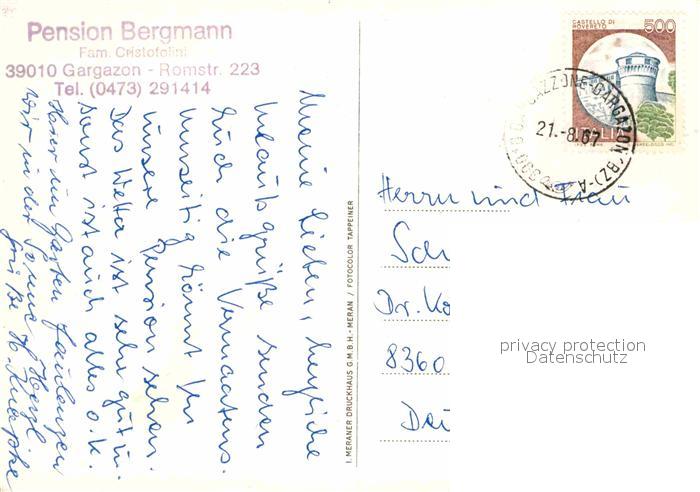 Pension Bergmann
Fam. Cristofolini
39010 Gargazon - Romstr. 223
Tel. (0473) 291414
Meine Lieben, herzliche
Urlaubsgrüße senden
Euch die Vermaatens.
Umseitig könnt Ihr
unsere Pension sehen.
Das Wetter ist sehr gut u.
sonst ist auch alles o.k.
Hier im Garten faulenzen
wir in der Sonne. Herzl.
Grüße H. Knapke
I. MERANER DRUCKHAUS G.M.B.H. - MERAN / FOTOCOLOR TAPPEINER
CASTELLO DI
ROVERETO
500
GARGAZZONE-GARGAZON (BZ)-A
21.-8.87
Herrn und Frau
Sch
Dr. Ko
8360
Deu
privacy protection
Datenschutz